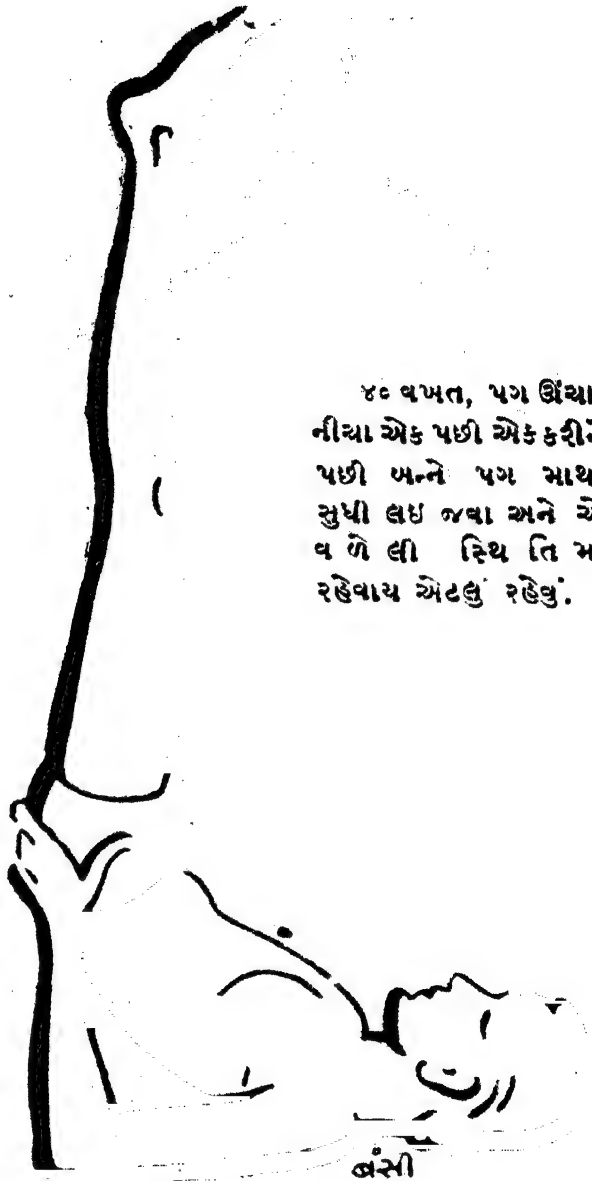 ૪૦ વખત, પગ ઊંચા
નીચા એક પછી એક કરીને
પછી બન્ને પગ
સુધી લઇ જવા અને
વ ળે લી સ્થિ તિ
રહેવાય એટલું રહેવું.
બંસી